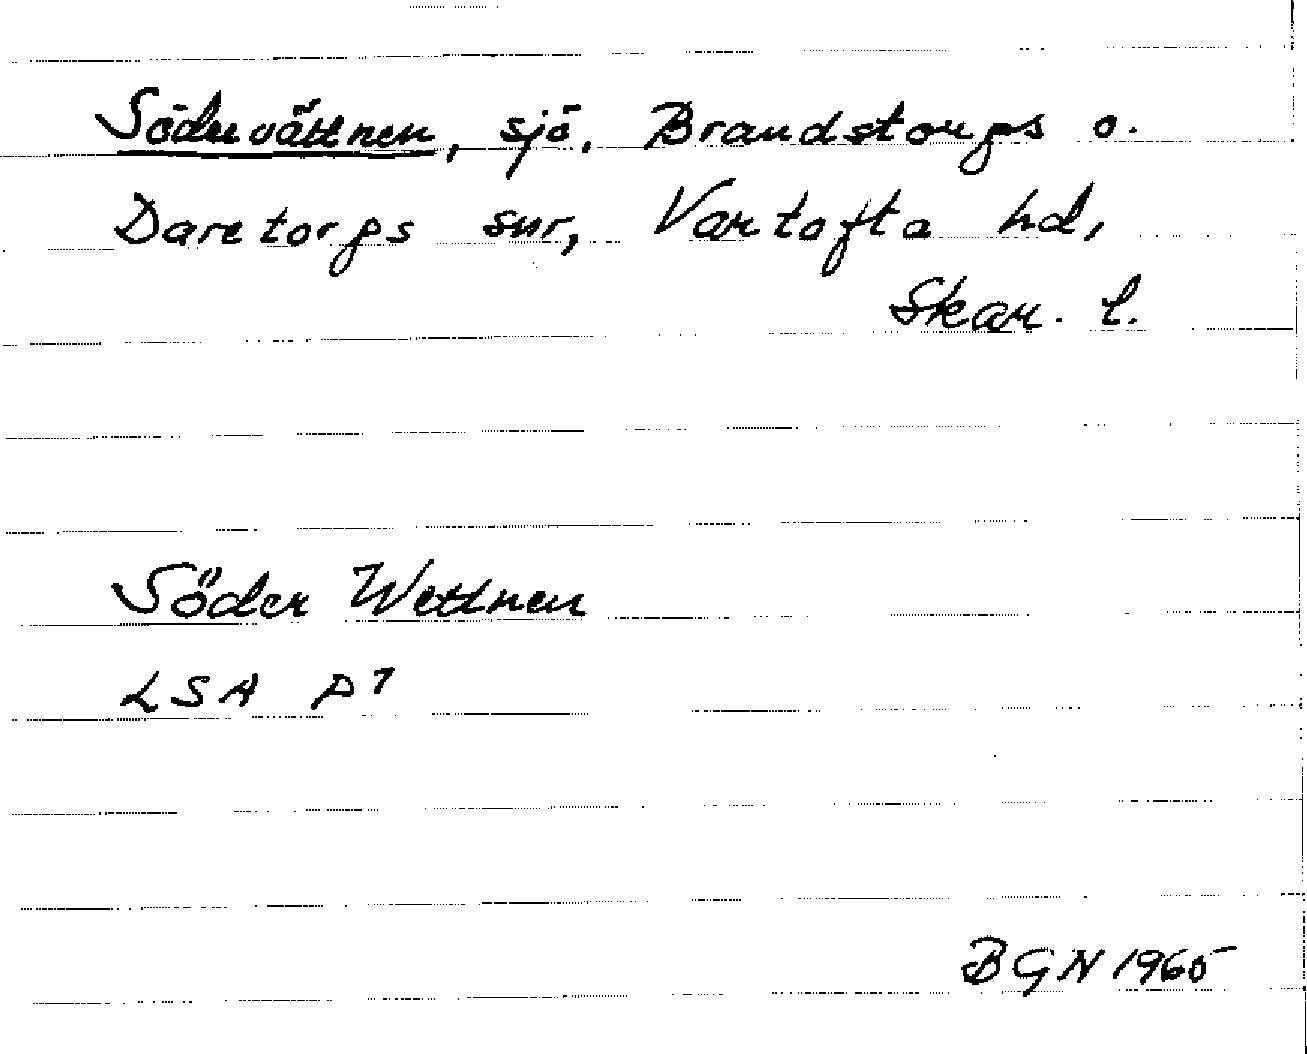 Södervättnen, sjö, Brandstorps o.
Daretorps snr, Vartofta hd,
Skar. l.
Söder Wettnen
LSA P7
BGN 1965